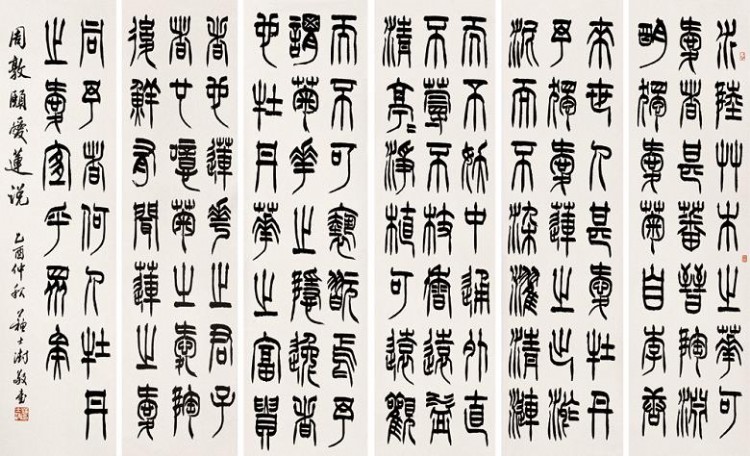 水陸艸木之華可
愛者甚蕃晉陶淵
明獨愛菊自李唐
来世人甚愛牡丹
予獨愛蓮之出淤
泥而不染濯清漣
而不妖中通外直
不蔓不枝香遠益
清亭〻淨植可遠觀
而不可褻翫焉予
謂菊華之隱逸者
也牡丹華之富貴
者也蓮花之君子
者也噫菊之愛陶
後鮮有聞蓮之愛
同予者何人牡丹
之愛宜乎眾矣
周敦頤愛蓮说 乙酉仲秋 蘇士澍敬書